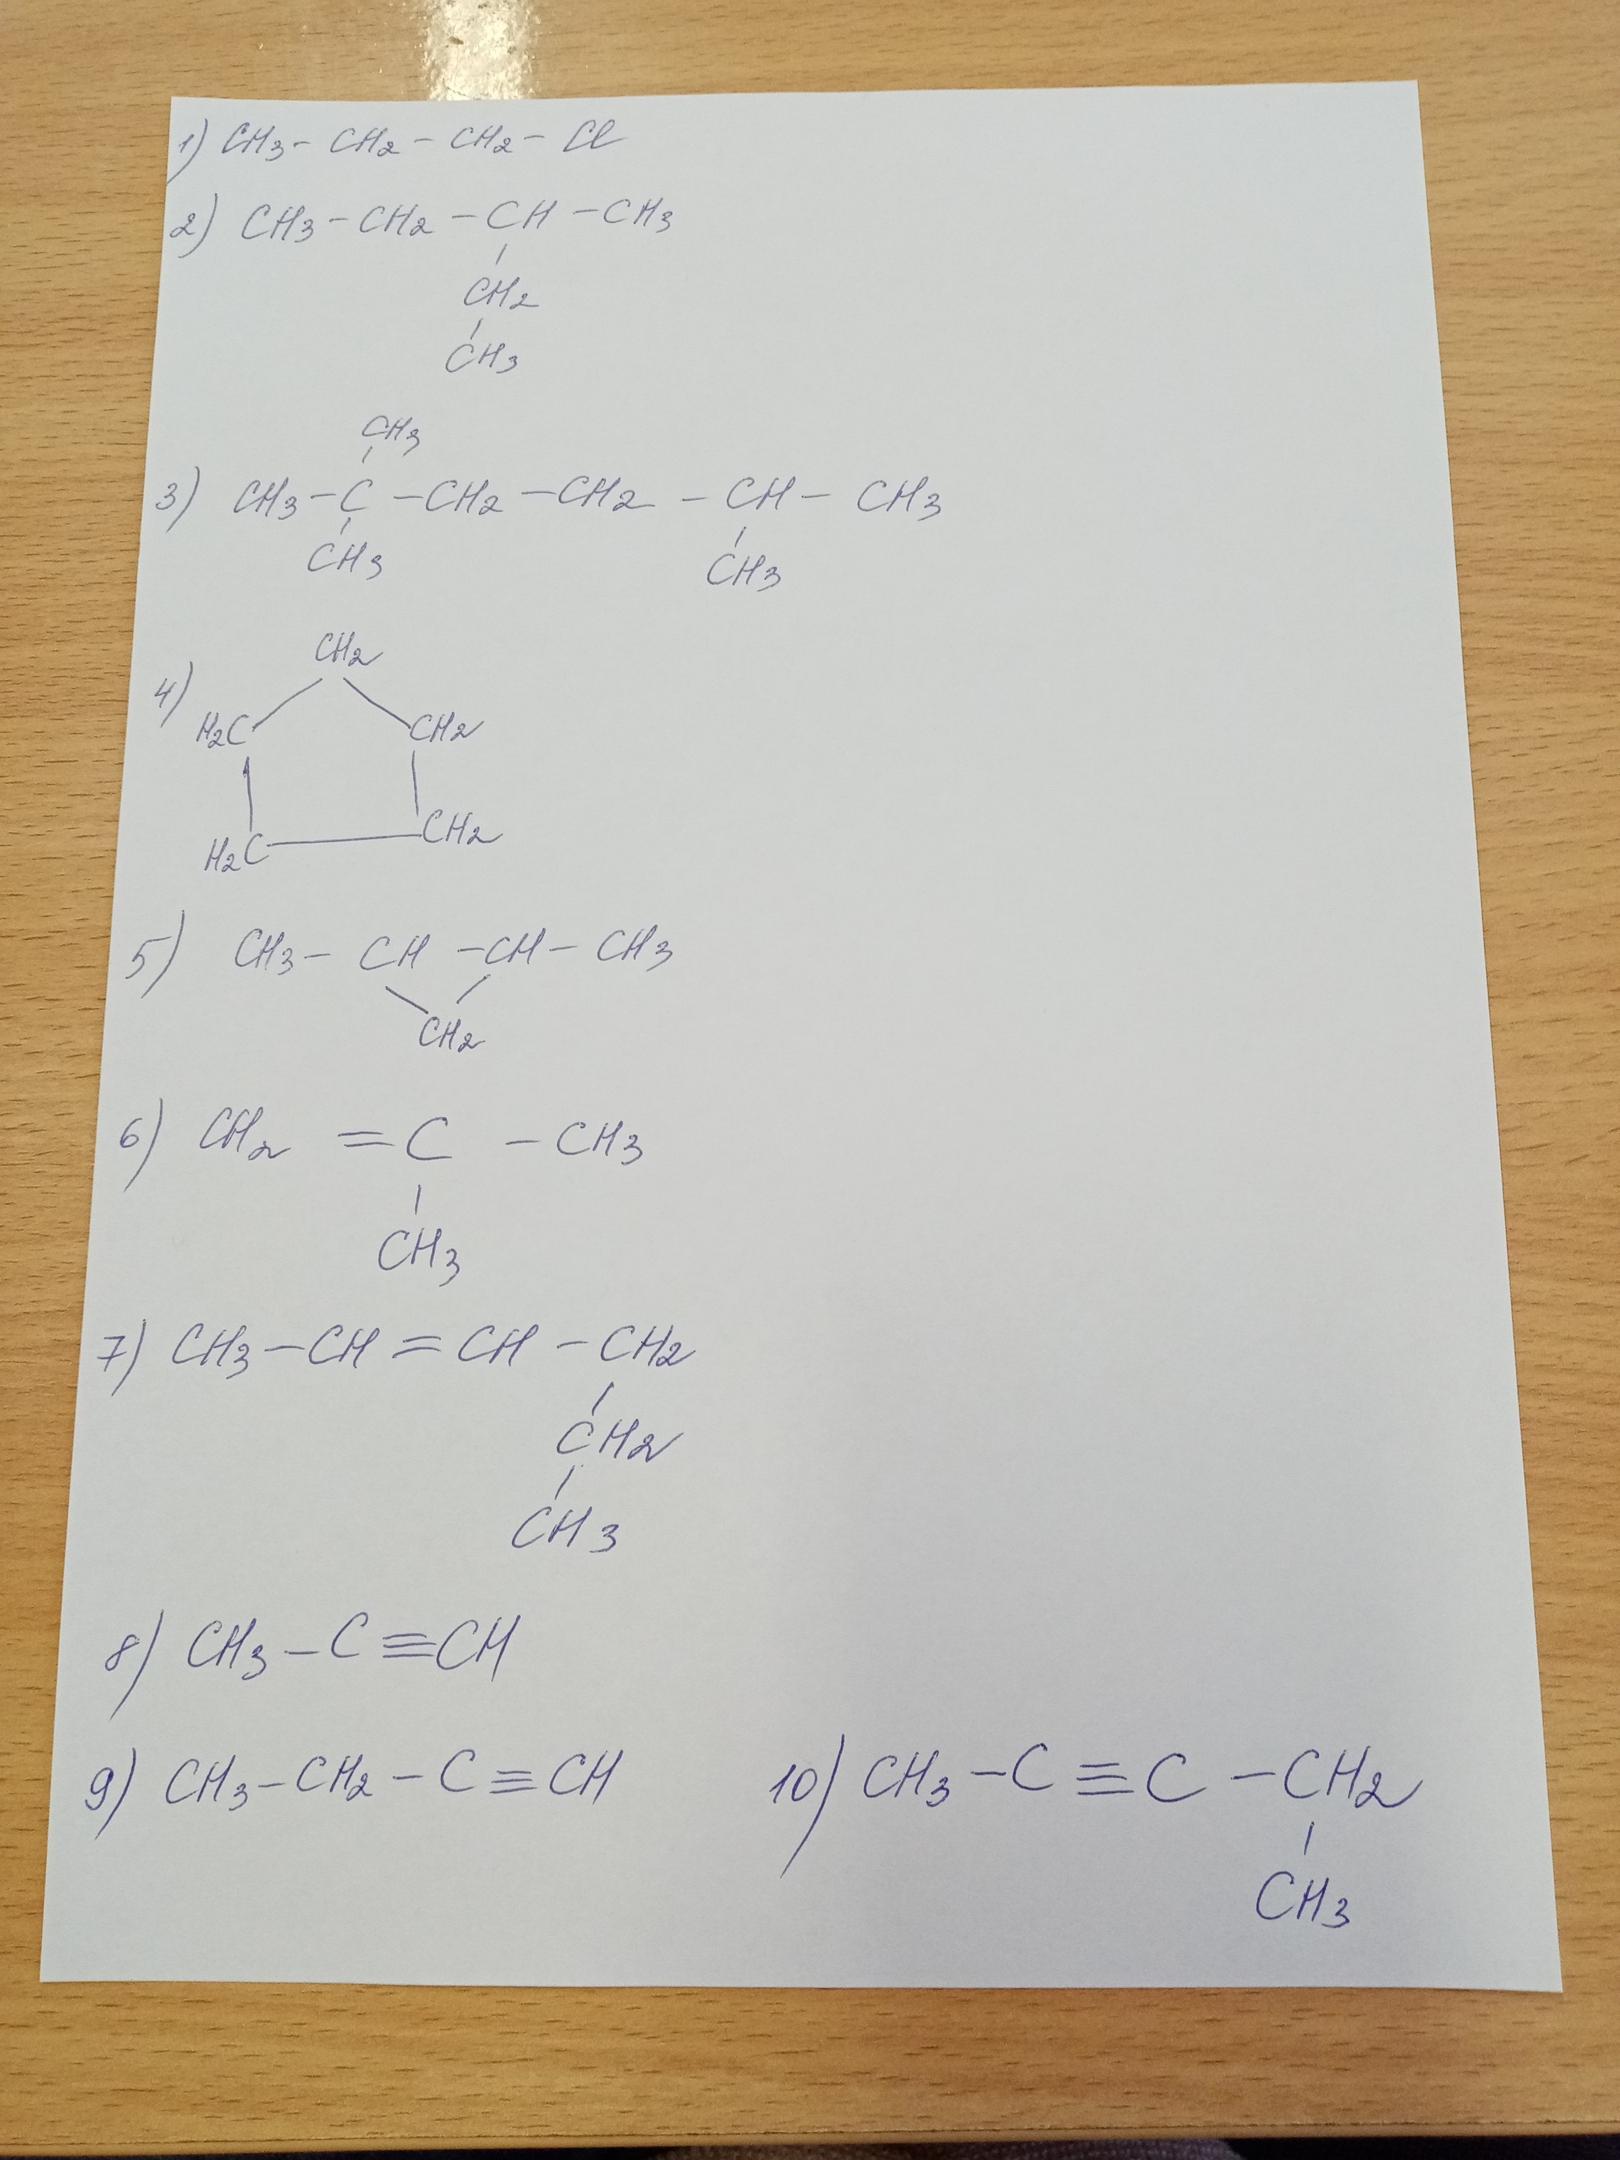 1) CH3 - CH2 - CH2 - Cl
2) CH3 - CH2 - CH - CH3
CH2
CH3
CH3
3) CH3 - C - CH2 - CH2 - CH - CH3
CH3 CH3
CH2
4)
H2C CH2
H2C CH2
5) CH3 - CH - CH - CH3
CH2
6) CH2 = C - CH3
CH3
7) CH3 - CH = CH - CH2
CH2
CH3
8) CH3 - C ≡ CH
9) CH3 - CH2 - C ≡ CH 10) CH3 - C ≡ C - CH2
CH3